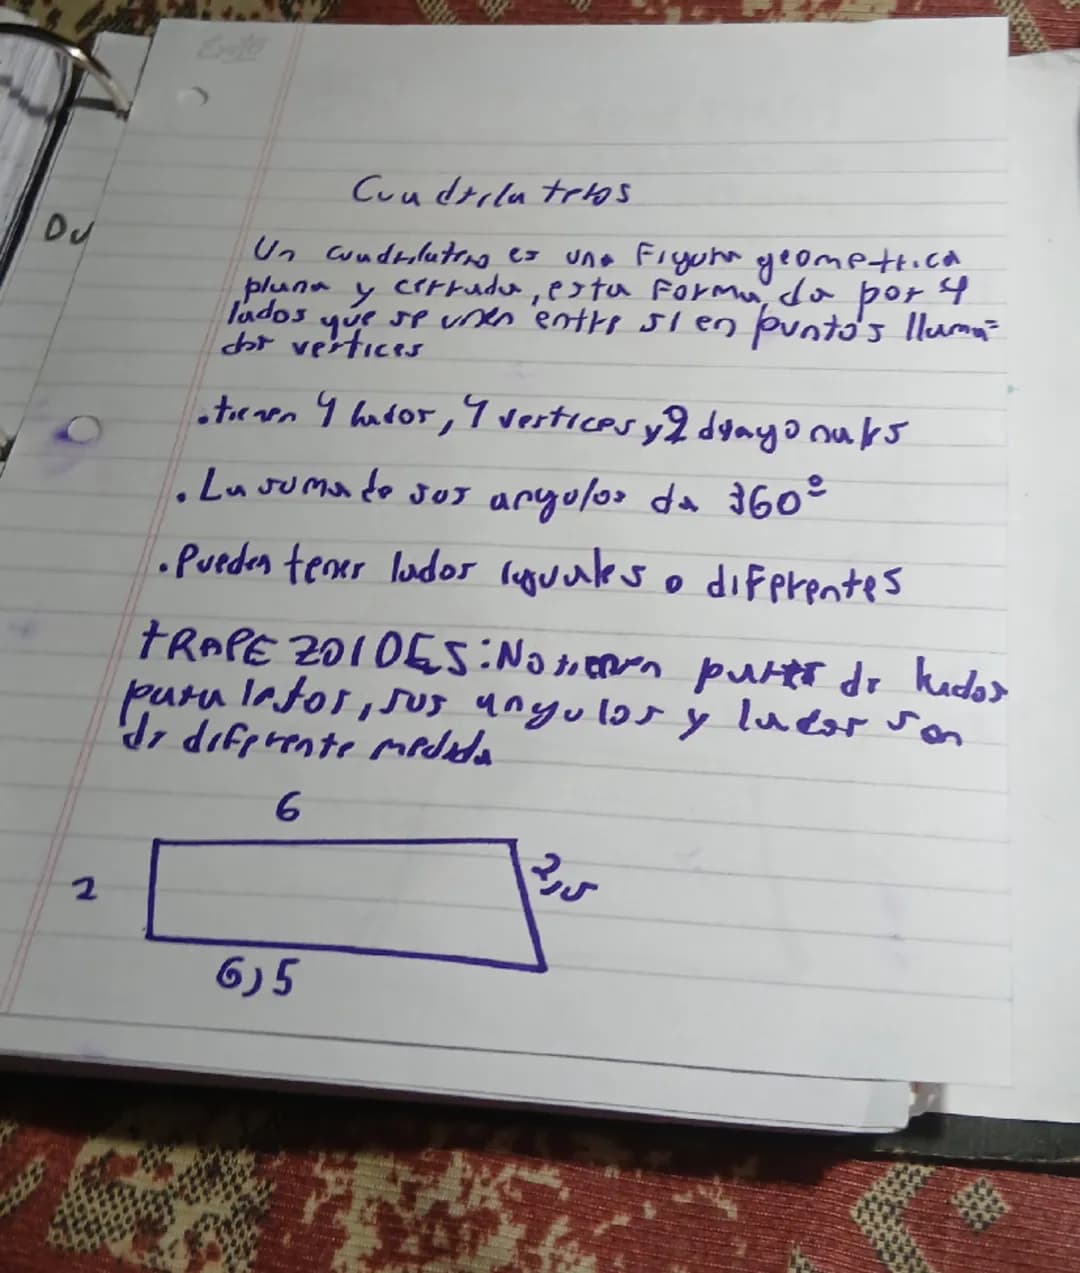 Du
Cuadrilateros
Un cuadrilatero es una Figura geomettrica
plana y cerrada, esta Formada por 4
lados que se unen entre si en puntos llama=
dos vertices
.tienen 4 lados, 4 vertices y 2 diagonales
. La suma de sus angulos da 360º
. Pueden tener lados iguales o diferentes
tRAPEZOIDES: No tienen pares de lados
paralelos, sus angulos y lados son
de diferente medida
6
2
2,5
6,5